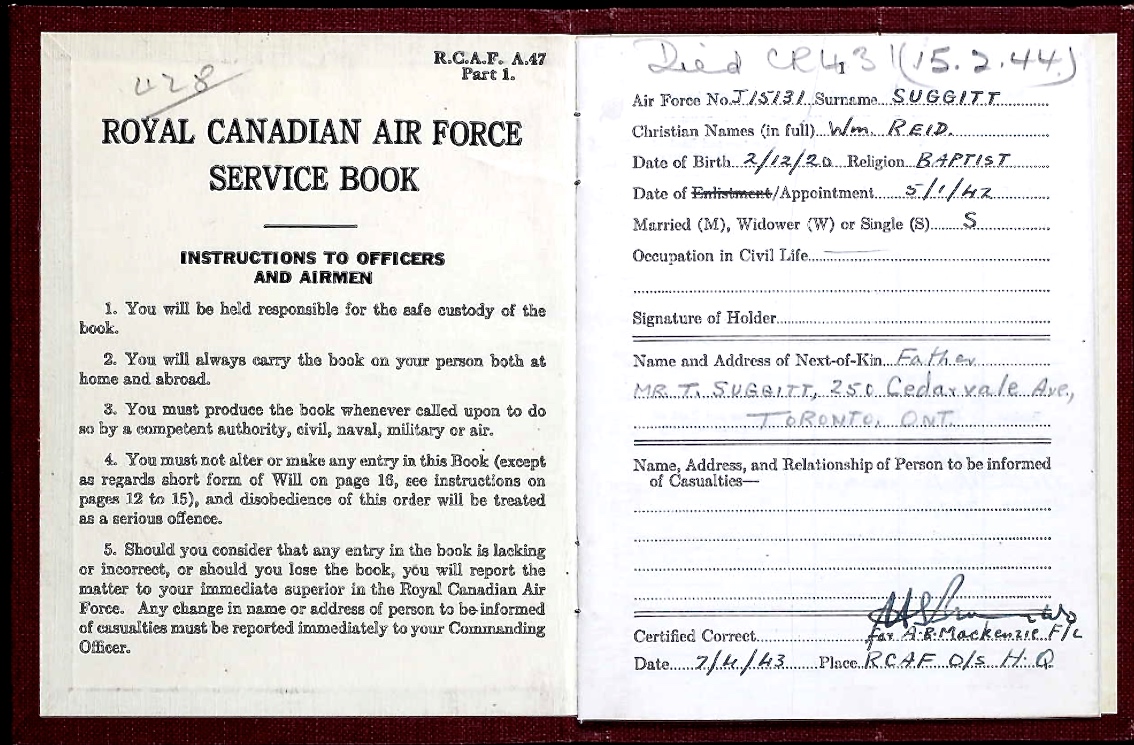 R.C.A.F. A.47
Part 1.
428
ROYAL CANADIAN AIR FORCE
SERVICE BOOK
INSTRUCTIONS TO OFFICERS
AND AIRMEN
1. You will be held responsible for the safe custody of the
book.
2. You will always carry the book on your person both at
home and abroad.
3. You must produce the book whenever called upon to do
so by a competent authority, civil, naval, military or air.
4. You must not alter or make any entry in this Book (except
as regards short form of Will on page 16, see instructions on
pages 12 to 15), and disobedience of this order will be treated
as a serious offence.
5. Should you consider that any entry in the book is lacking
or incorrect, or should you lose the book, you will report the
matter to your immediate superior in the Royal Canadian Air
Force. Any change in name or address of person to be informed
of casualties must be reported immediately to your Commanding
Officer.
Died CR431 (15.2.44)
Air Force No. J15131 Surname SUGGITT
Christian Names (in full) Wm. REID.
Date of Birth 2/12/20 Religion BAPTIST
Date of Enlistment/Appointment 5/1/42
Married (M), Widower (W) or Single (S) S
Occupation in Civil Life
Signature of Holder
Name and Address of Next-of-Kin Father
MR. T. SUGGITT, 250 Cedarvale Ave.,
TORONTO, ONT.
Name, Address, and Relationship of Person to be informed
of Casualties—
Certified Correct for A.B. Mackenzie F/L
Date 7/4/43 Place RCAF O/S H.Q